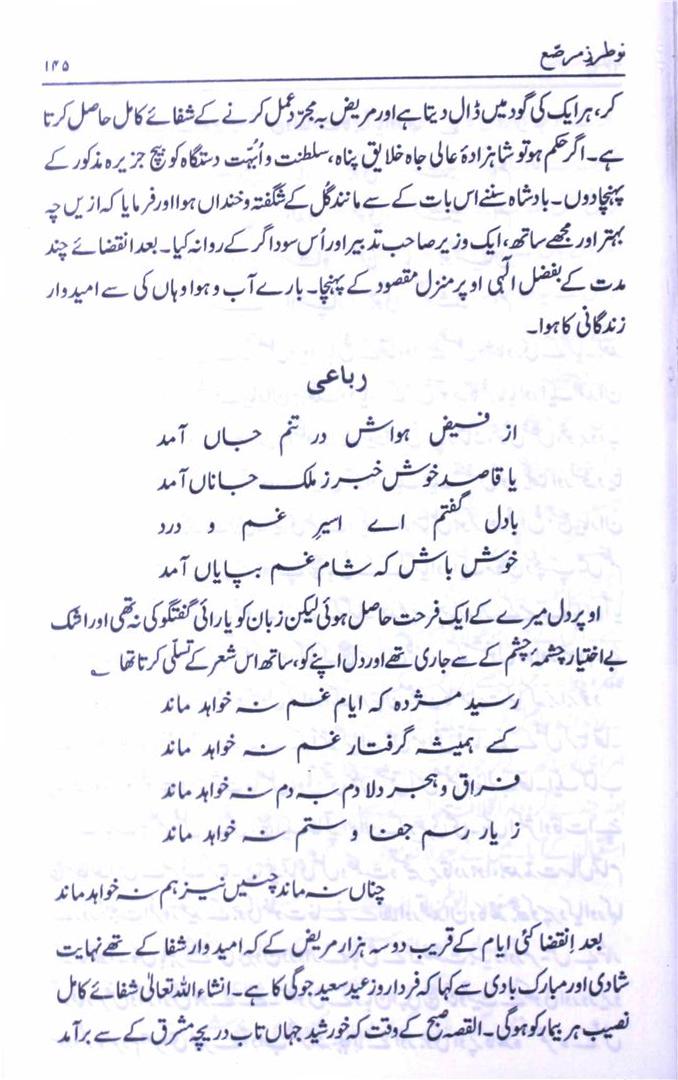 نو طرزِ مرصّع
۱۴۵
کر، ہر ایک کی گود میں ڈال دیتا ہے اور مریض بہ مجرّد عمل کرنے کے شفائے کامل حاصل کرتا
ہے۔ اگر حکم ہو تو شاہزادۂ عالی جاہ خلایق پناہ، سلطنت و اُبہت دستگاہ کو بیچ جزیرہ مذکور کے
پہنچا دوں۔ بادشاہ سننے اس بات کے سے مانند گُل کے شگفتہ و خنداں ہوا اور فرمایا کہ ازیں چہ
بہتر اور مجھے ساتھ، ایک وزیر صاحب تدبیر اور اُس سوداگر کے روانہ کیا۔ بعد انقضائے چند
مدت کے بفضل الٰہی اوپر منزل مقصود کے پہنچا۔ بارے آب و ہوا وہاں کی سے امیدوار
زندگانی کا ہوا۔
رباعی
از فیض ہواش در تنم جاں آمد
یا قاصد خوش خبر ز ملک جاناں آمد
بادل گفتم اے اسیرِ غم و درد
خوش باش کہ شام غم بپایاں آمد
اوپر دل میرے کے ایک فرحت حاصل ہوئی لیکن زبان کو یارائی گفتگو کی نہ تھی اور اشک
بے اختیار چشمۂ چشم کے سے جاری تھے اور دل اپنے کو، ساتھ اس شعر کے تسلّی کرتا تھا ؎
رسید مژدہ کہ ایام غم نہ خواہد ماند
کسے ہمیشہ گرفتار غم نہ خواہد ماند
فراق و ہجر دلا دم بہ دم نہ خواہد ماند
ز یار رسم جفا و ستم نہ خواہد ماند
چناں نہ ماند چنیں نیز ہم نہ خواہد ماند
بعد اِنقضا کئی ایام کے قریب دو سہ ہزار مریض کے کہ امیدوار شفا کے تھے نہایت
شادی اور مبارک بادی سے کہا کہ فردا روز عید سعید جوگی کا ہے۔ انشاء اللہ تعالیٰ شفائے کامل
نصیب ہر بیمار کو ہوگی۔ القصہ صبح کے وقت کہ خورشید جہاں تاب دریچہ مشرق کے سے برآمد